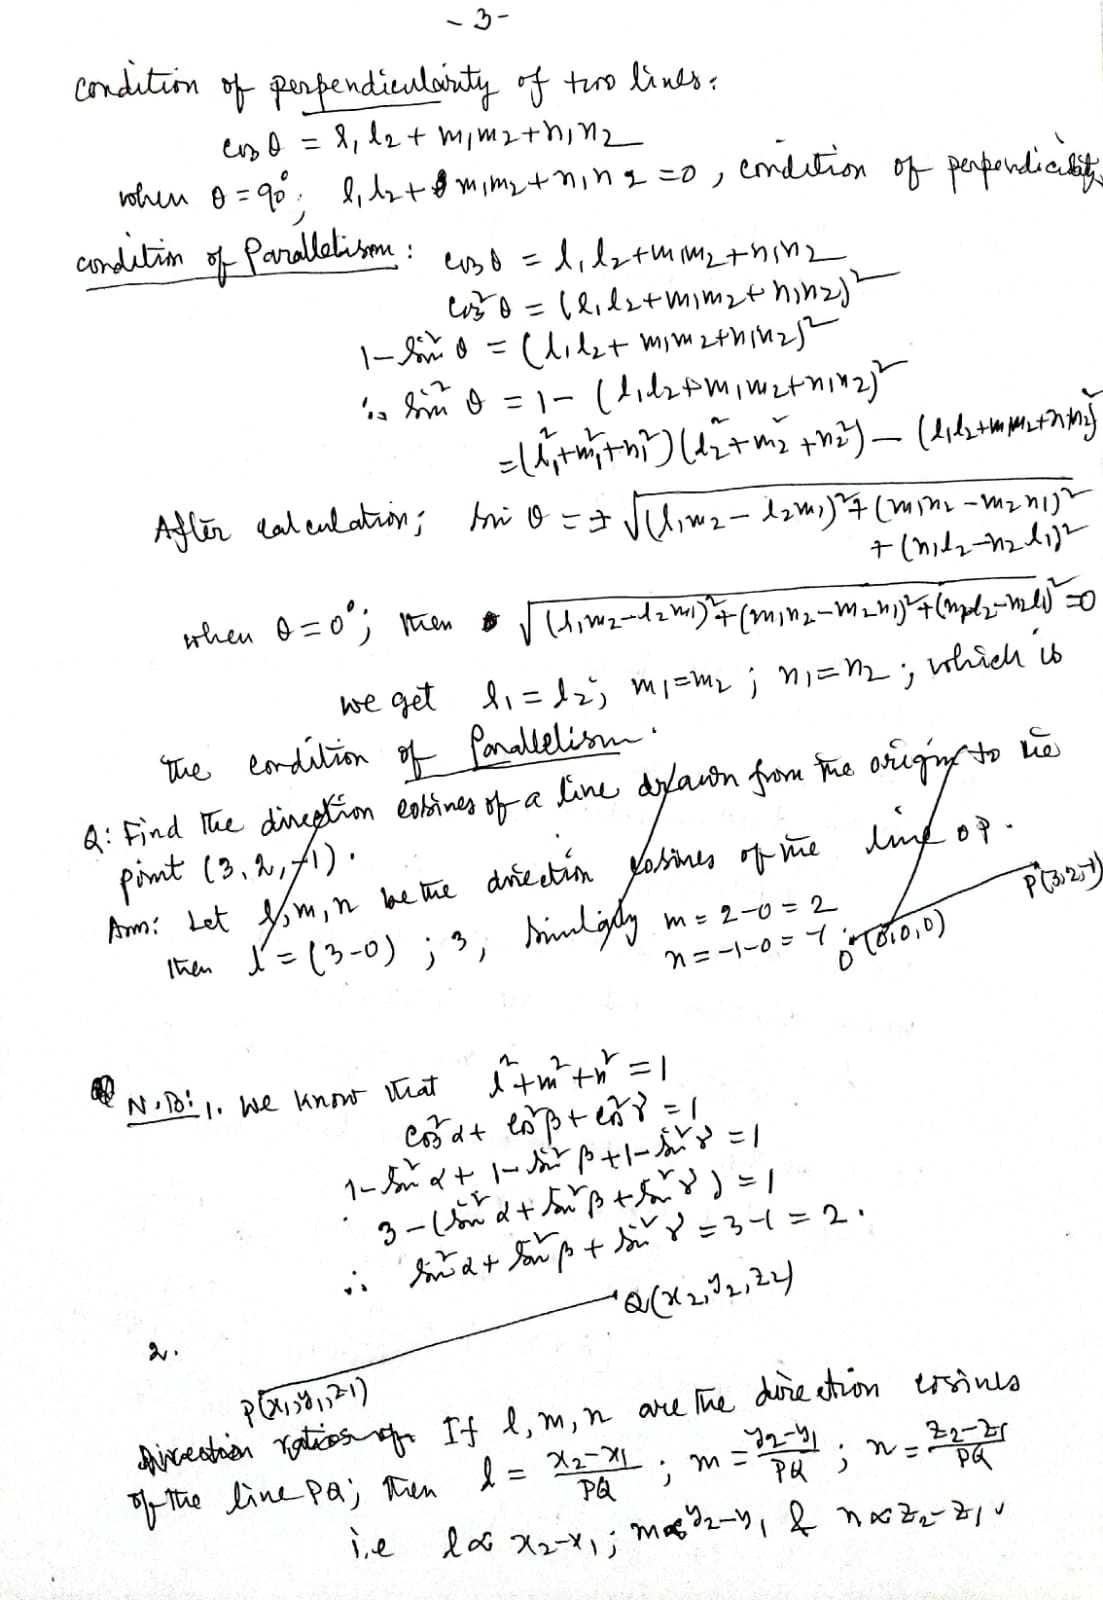 - 3 -
condition of perpendicularity of two lines:
cos θ = l₁l₂ + m₁m₂ + n₁n₂
when θ = 90°; l₁l₂ + m₁m₂ + n₁n₂ = 0, condition of perpendicularity
condition of Parallelism: cos θ = l₁l₂ + m₁m₂ + n₁n₂
cos²θ = (l₁l₂ + m₁m₂ + n₁n₂)²
1 - sin²θ = (l₁l₂ + m₁m₂ + n₁n₂)²
∴ sin²θ = 1 - (l₁l₂ + m₁m₂ + n₁n₂)²
= (l₁² + m₁² + n₁²)(l₂² + m₂² + n₂²) - (l₁l₂ + m₁m₂ + n₁n₂)²
After calculation; sin θ = ± √(l₁m₂ - l₂m₁)² + (m₁n₂ - m₂n₁)²
+ (n₁l₂ - n₂l₁)²
when θ = 0°; then √(l₁m₂ - l₂m₁)² + (m₁n₂ - m₂n₁)² + (n₁l₂ - n₂l₁)² = 0
we get l₁ = l₂; m₁ = m₂; n₁ = n₂; which is
the condition of Parallelism.
Q: Find the direction cosines of a line drawn from the origin to the
point (3, 2, -1).
Ans: Let l, m, n be the direction cosines of the line OP.
then l = (3-0) ; 3, similarly m = 2-0 = 2
n = -1-0 = -1
O (0,0,0)
P(3,2,-1)
N.B: 1. We know that l² + m² + n² = 1
cos²α + cos²β + cos²γ = 1
1 - sin²α + 1 - sin²β + 1 - sin²γ = 1
3 - (sin²α + sin²β + sin²γ) = 1
∴ sin²α + sin²β + sin²γ = 3 - 1 = 2.
Q(x₂, y₂, z₂)
2.
P(x₁, y₁, z₁)
Direction ratios of If l, m, n are the direction cosines
of the line PQ; then l = (x₂-x₁)/PQ ; m = (y₂-y₁)/PQ ; n = (z₂-z₁)/PQ
i.e l ∝ x₂-x₁; m ∝ y₂-y₁ & n ∝ z₂-z₁.